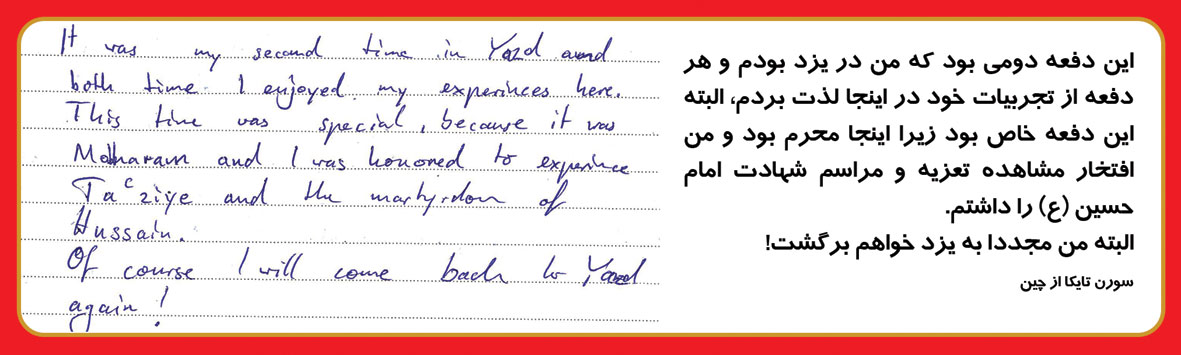 It was my second time in Yazd and
both time I enjoyed my experinces here.
This time was special, because it was
Moharam and I was honored to experince
Ta ͨziye and the martyrdom of
Hussain.
Of course I will come back to Yazd
again!
این دفعه دومی بود که من در یزد بودم و هر
دفعه از تجربیات خود در اینجا لذت بردم، البته
این دفعه خاص بود زیرا اینجا محرم بود و من
افتخار مشاهده تعزیه و مراسم شهادت امام
حسین (ع) را داشتم.
البته من مجددا به یزد خواهم برگشت!
سورن تایکا از چین